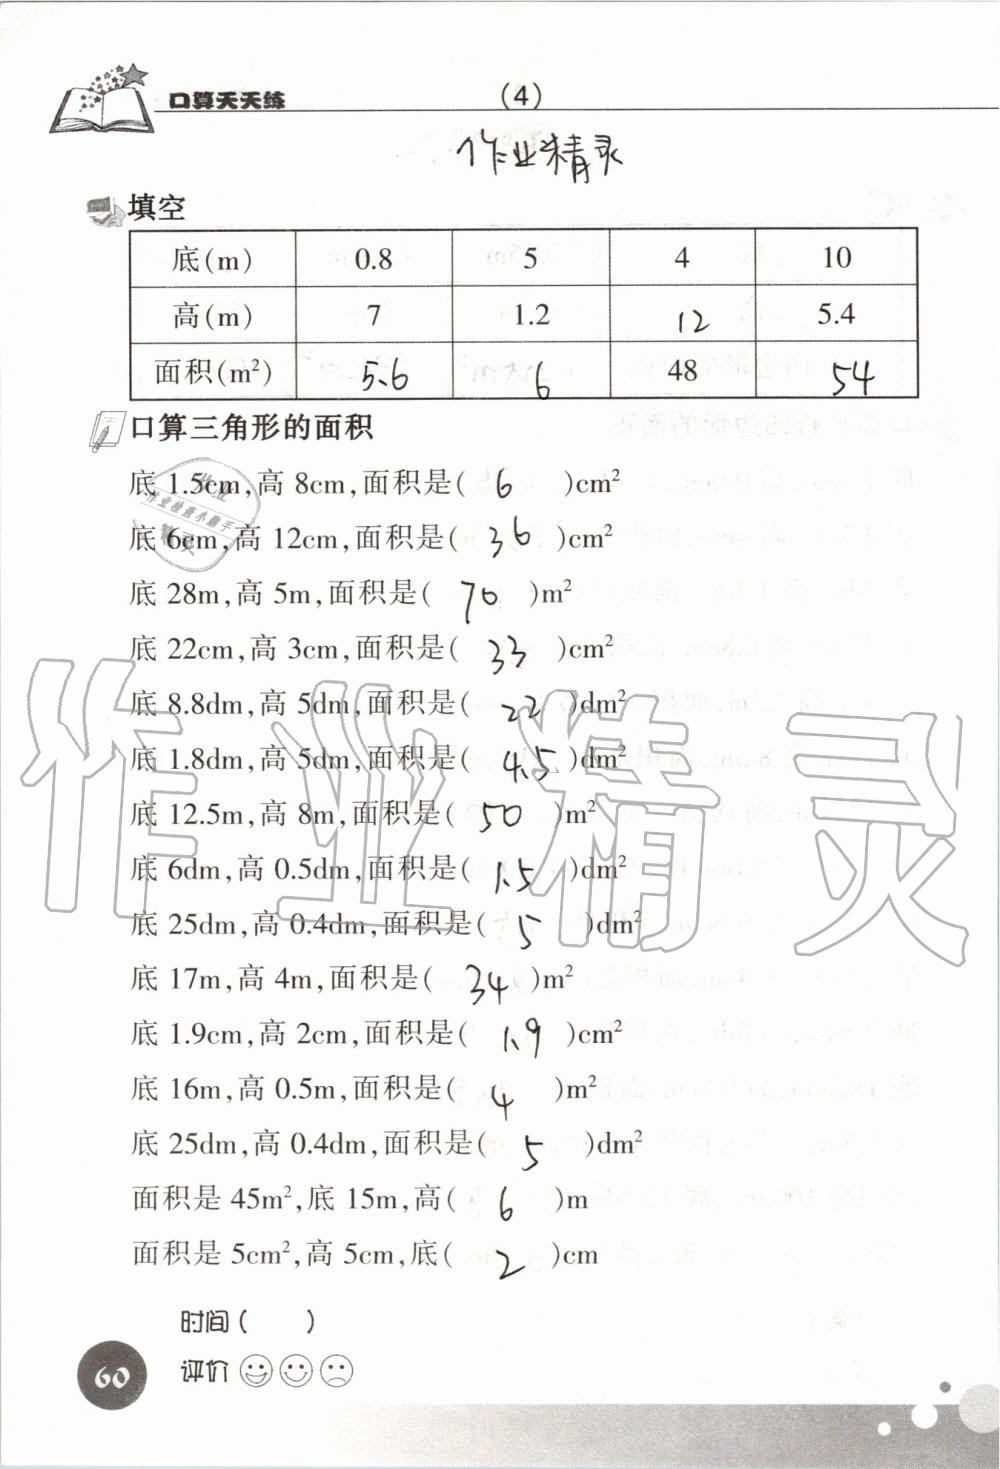 口算天天练 (4)
作业精灵
填空
底(m) 0.8 5 4 10
高(m) 7 1.2 12 5.4
面积(m²) 5.6 6 48 54
口算三角形的面积
底 1.5cm,高 8cm,面积是( 6 )cm²
底 6cm,高 12cm,面积是( 36 )cm²
底 28m,高 5m,面积是( 70 )m²
底 22cm,高 3cm,面积是( 33 )cm²
底 8.8dm,高 5dm,面积是( 22 )dm²
底 1.8dm,高 5dm,面积是( 4.5 )dm²
底 12.5m,高 8m,面积是( 50 )m²
底 6dm,高 0.5dm,面积是( 1.5 )dm²
底 25dm,高 0.4dm,面积是( 5 )dm²
底 17m,高 4m,面积是( 34 )m²
底 1.9cm,高 2cm,面积是( 1.9 )cm²
底 16m,高 0.5m,面积是( 4 )m²
底 25dm,高 0.4dm,面积是( 5 )dm²
面积是 45m²,底 15m,高( 6 )m
面积是 5cm²,高 5cm,底( 2 )cm
时间( )
评价
60
作业精灵
作业
作业检查小助手
精灵